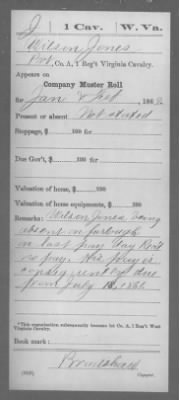 J | 1 Cav. | W. Va.
Wilson Jones
Pvt, Co. A, 1 Reg't Virginia Cavalry.
Appears on
Company Muster Roll
for Jan & Feb, 1862.
Present or absent Not stated
Stoppage, $ 100 for
Due Gov't, $ 100 for
Valuation of horse, $ 100
Valuation of horse equipments, $ 100
Remarks: Wilson Jones being
absent on furlough
on last pay day Recd
no pay. His pay is
consequently due
from July 18, 1861
*This organization subsequently became 1st Co. A, 1 Reg't West
Virginia Cavalry.
Book mark:
(858) Copyist.